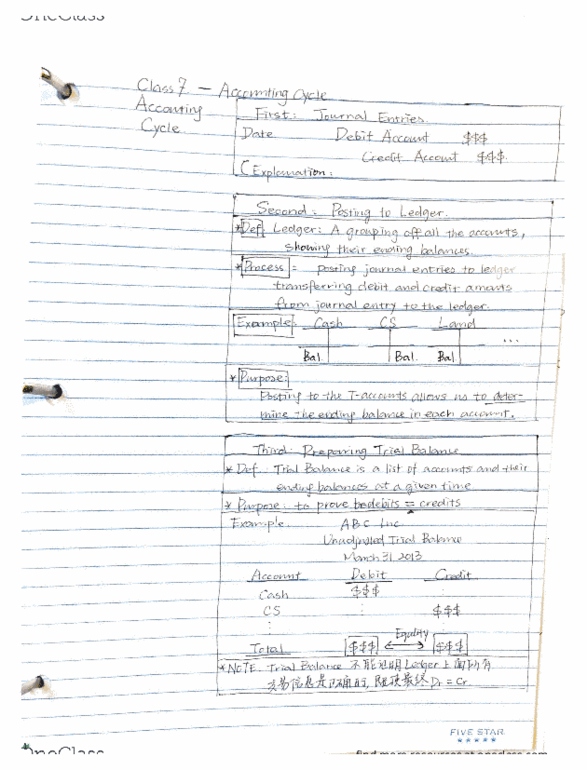 OneClass
Class 7 — Accounting Cycle
Accounting
Cycle
First: Journal Entries.
Date Debit Account $$$
Credit Account $$$.
(Explanation.
Second: Posting to Ledger.
*Def: Ledger: A grouping of all the accounts,
showing their ending balances.
*Process: posting journal entries to ledger
transferring debit and credit amounts
from journal entry to the ledger.
Example: Cash CS Land
...
Bal. Bal. Bal
* Purpose:
Posting to the T-accounts allows us to deter-
mine the ending balance in each account.
Third: Preparing Trial Balance
* Def: Trial Balance is a list of accounts and their
ending balances at a given time
* Purpose: to prove debits = credits
Example. ABC Inc
Unadjusted Trial Balance
March 31 2013
Account Debit Credit
Cash $$$
CS $$$
Equality
Total $$$ $$$
*NOTE. Trial Balance 不能证明 Ledger 上面所有
交易信息是正确的, 最终 Dr = Cr.
FIVE STAR
★★★★★
OneClass
find more resources at oneclass.com